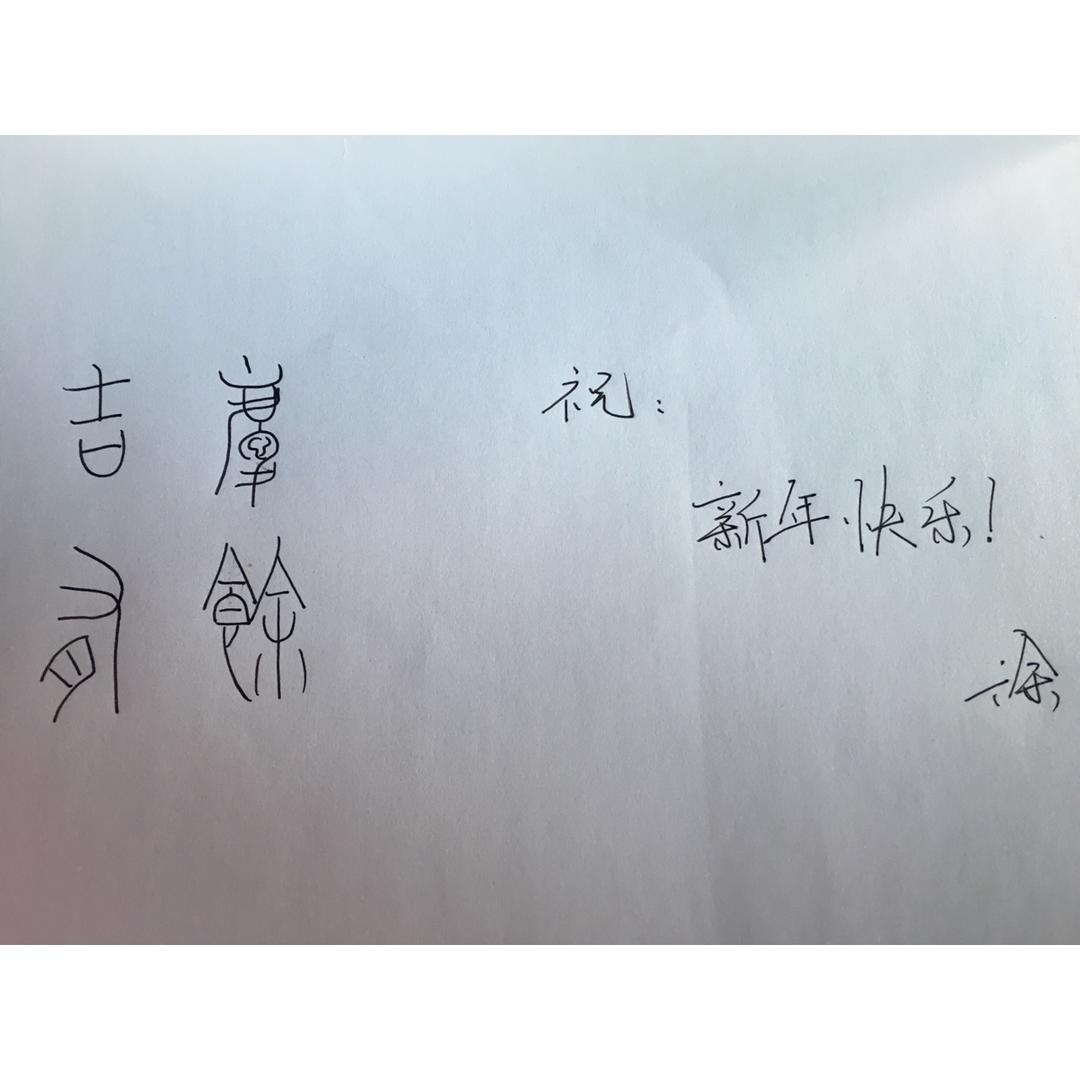 吉慶
有餘
祝：
新年快乐！